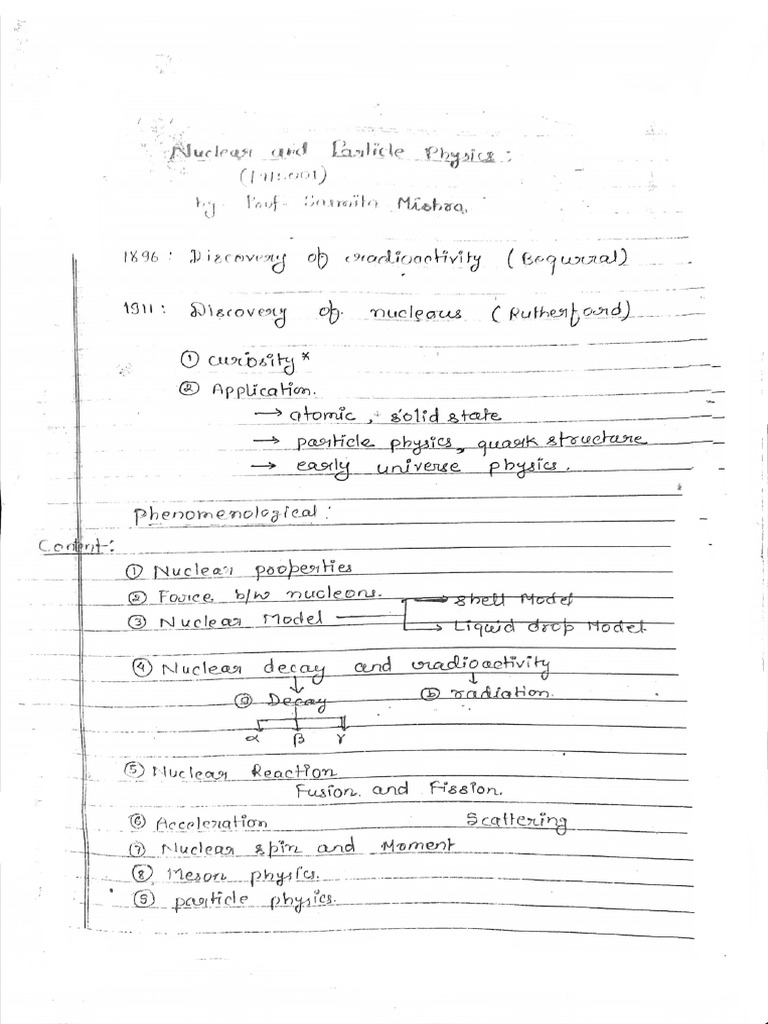 Nuclear and Particle Physics:
by Prof- Sasmita Mishra.
1896: Discovery of radioactivity (Bequrral)
1911: Discovery of nucleous (Rutherford)
① curiosity*
② Application.
→ atomic, + solid state
→ particle physics, quark structure
→ early universe physics.
Phenomenological:
Content:
① Nuclear pooperties
② Force b/w nucleons.
→ shell Model
③ Nuclear Model
→ Liquid drop Model
④ Nuclear decay and radioactivity
ⓐ Decay ⓑ radiation.
α β γ
⑤ Nuclear Reaction
Fusion and Fission.
⑥ Acceleration Scattering
⑦ Nuclear spin and Moment
⑧ Meson physics.
⑤ particle physics.